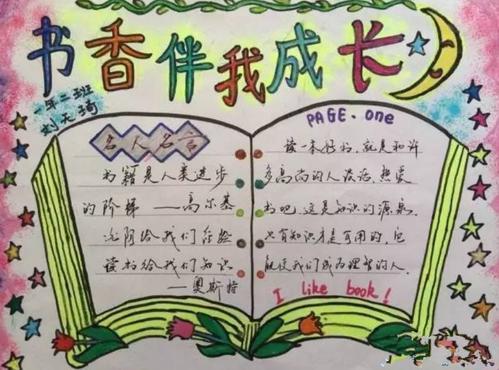 书香伴我成长
一年二班
刘天琦
名人名言
书籍是人类进步
的阶梯——高尔基
光阴给我们经验
读书给我们知识
——奥斯特
PAGE.one
读一本好书,就是和许
多高尚的人谈话,热爱
书吧,这是知识的源泉,
只有知识才是有用的,它
能使我们成为理智的人,
I like book!